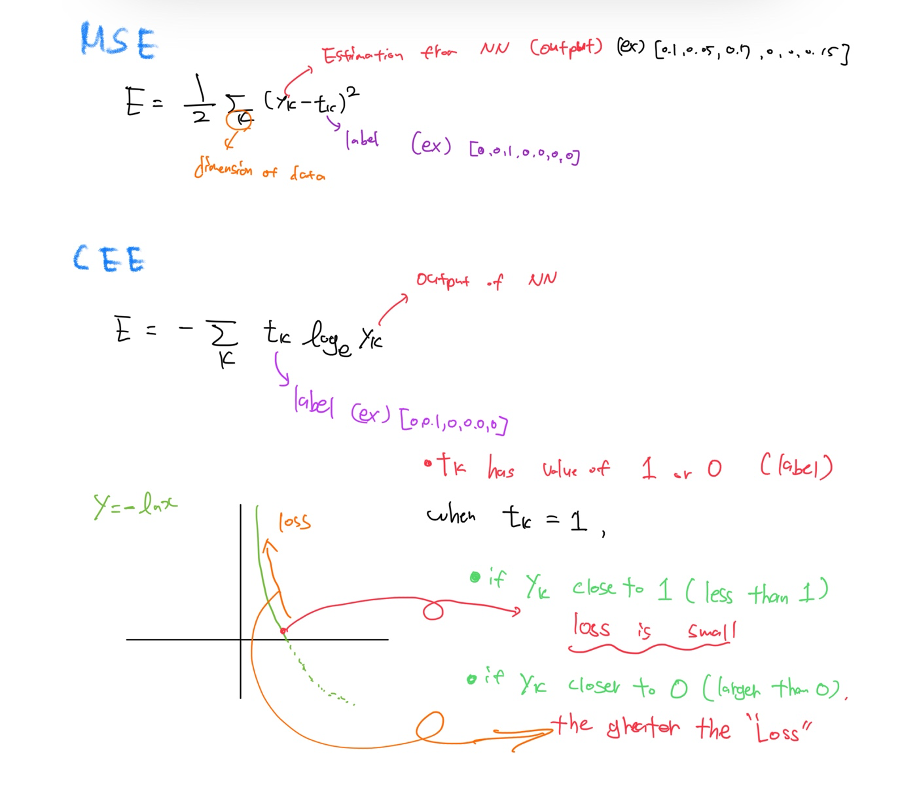 MSE
Estimation from NN (output) (ex) [0.1, 0.05, 0.7, 0, 0, 0.15]
E = 1/2 Σ_K (y_K - t_K)²
label (ex) [0,0,1,0,0,0,0]
dimension of data
CEE
output of NN
E = - Σ_K t_K log_e y_K
label (ex) [0,0,1,0,0,0,0]
• t_K has value of 1 or 0 (label)
y = -ln x
loss
when t_K = 1,
• if y_K close to 1 (less than 1)
loss is small
• if y_K closer to 0 (larger than 0).
the greater the "Loss"